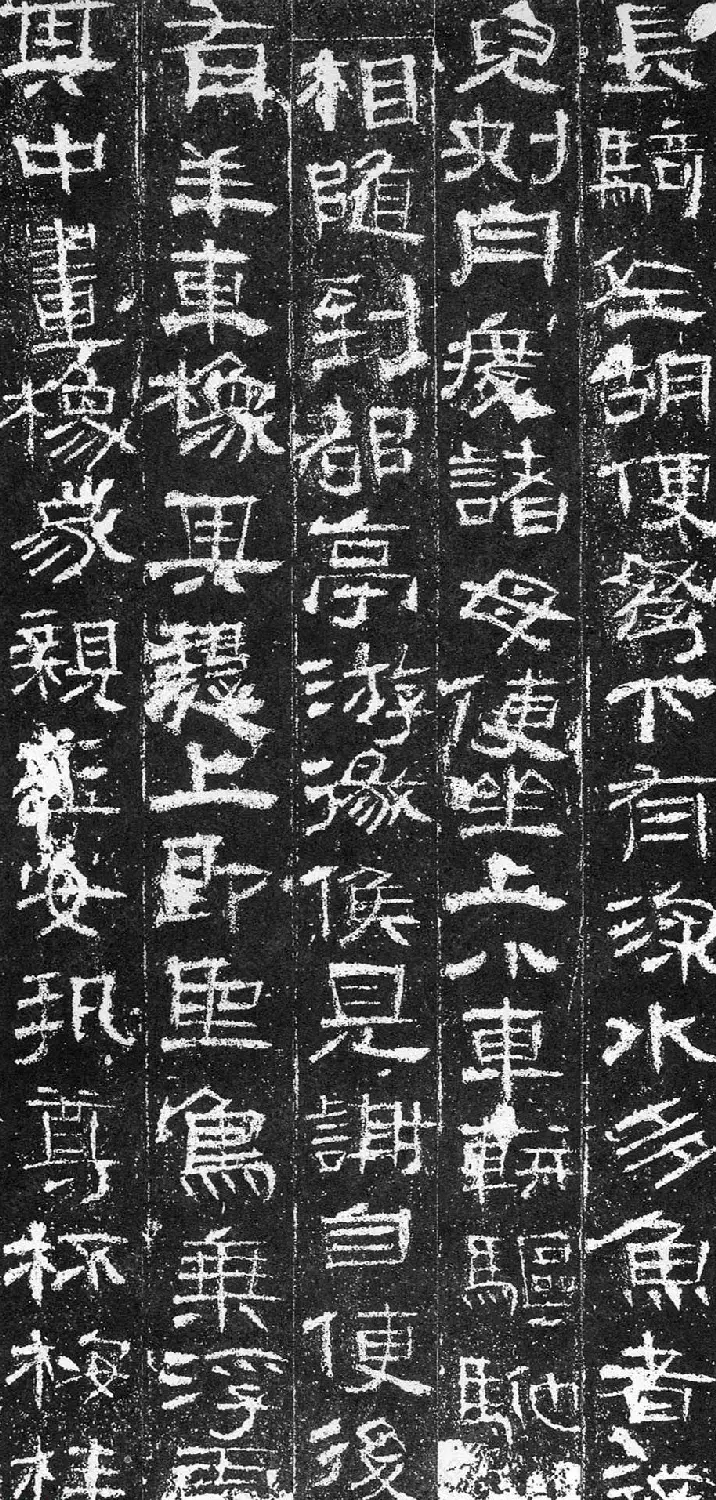 長騎佐胡使弩下有流水多魚者從
兒刾舟渡諸母使坐上小車軿驅馳
相隨到都亭游徼候見謝自便後
有羊車橡其槥上即聖鳥乘浮雲
其中畫橡家親玉女執尊杯桉柈